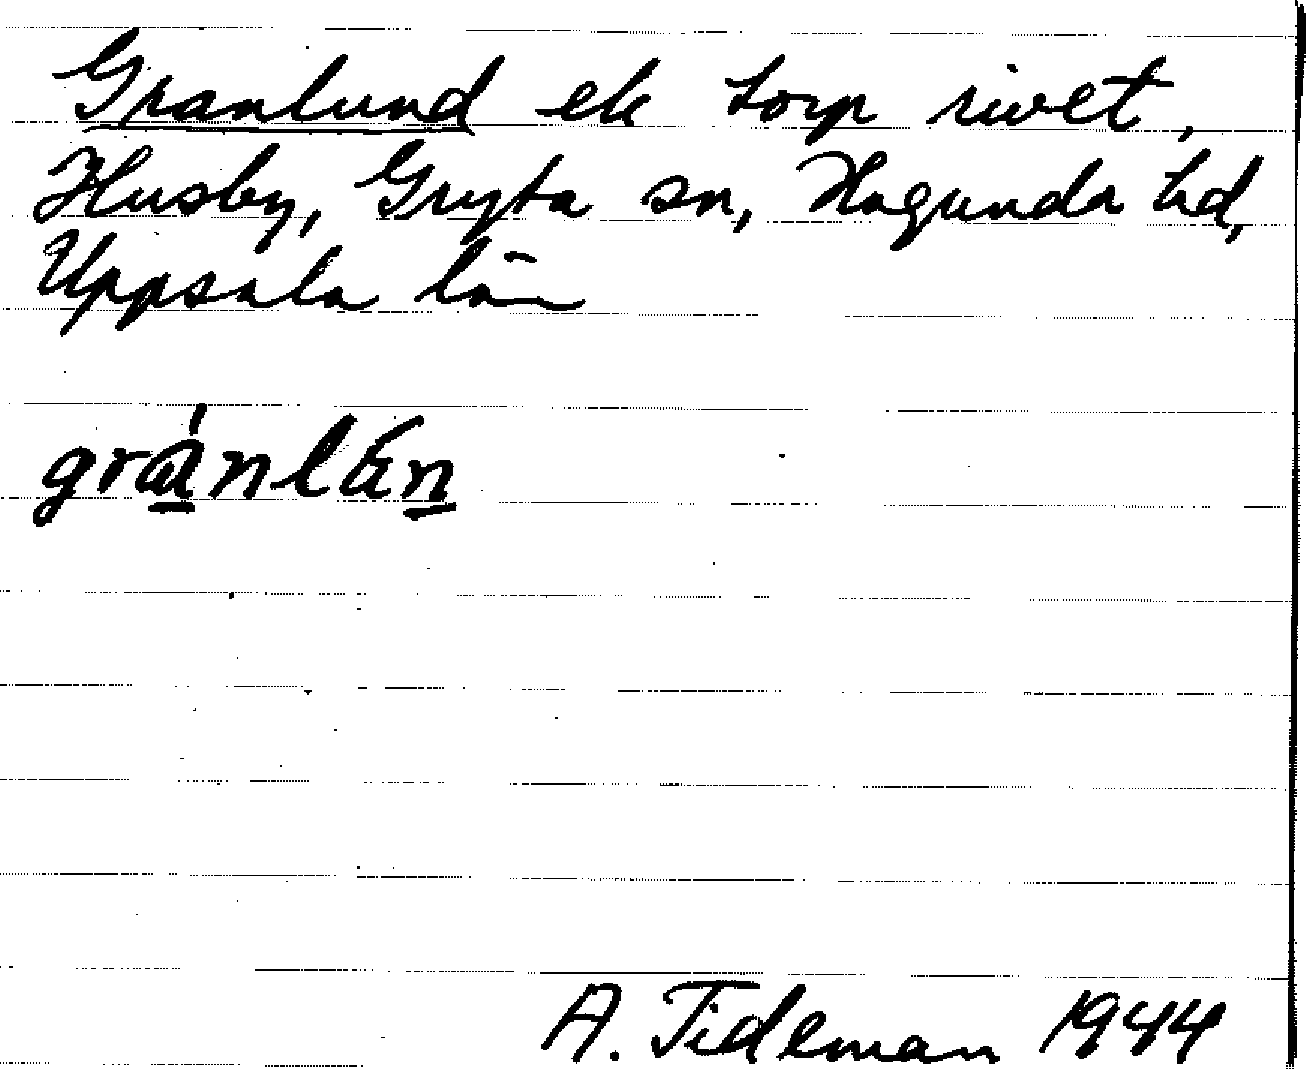 Granlund ek torp rivet,
Husby, Gryta sn, Hagunda hd,
Uppsala län
A. Tideman 1944